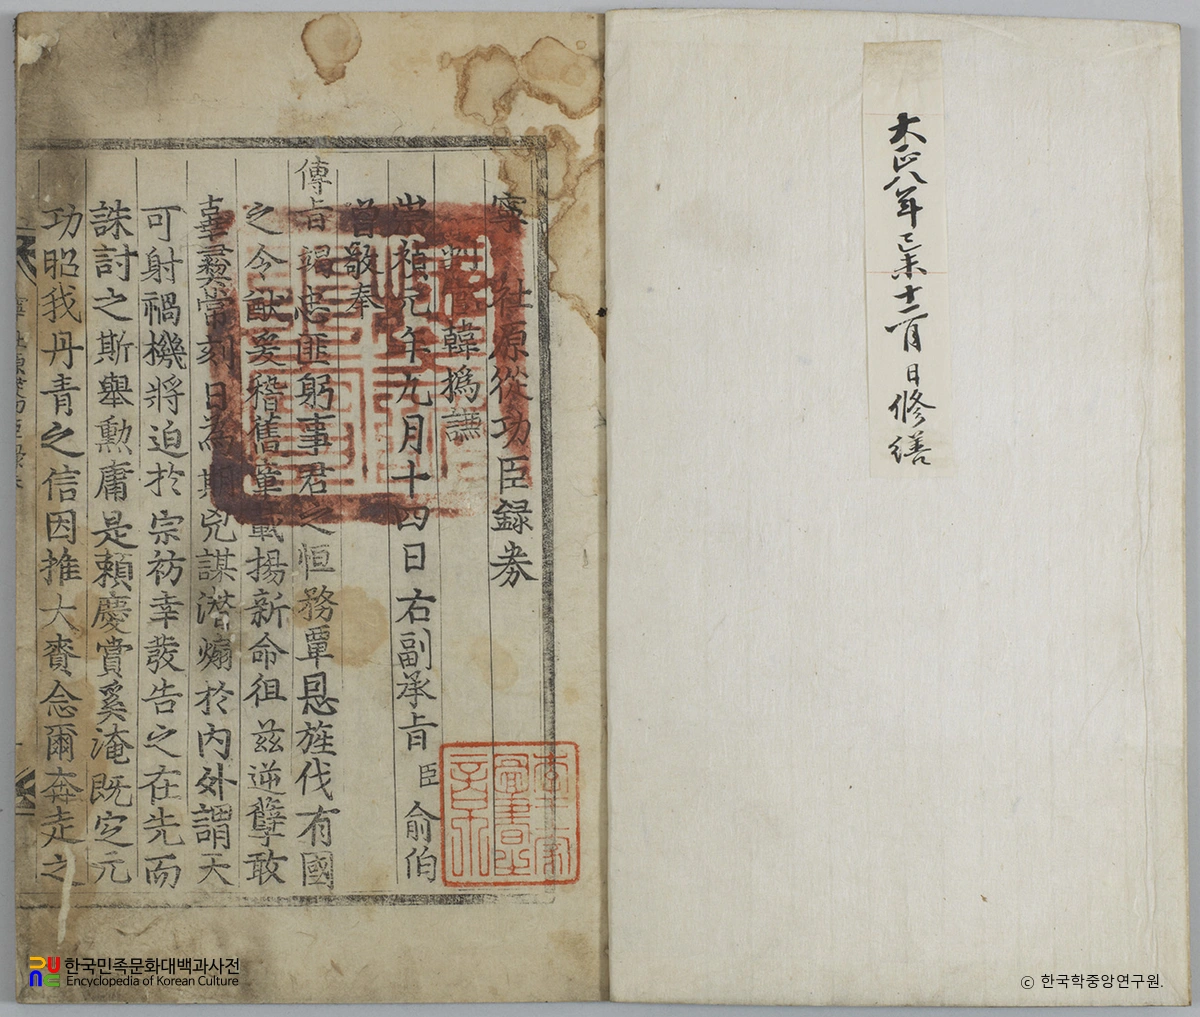 大正八年己未十二月日修繕
寧社原從功臣録券
韓撝謙
崇禎元年九月十四日右副承旨臣俞伯
曾敬奉
傳旨竭忠匪躬事君之恒務覃恩旌伐有國
之令猷爰稽舊章載揚新命徂玆逆孽敢
刻日為期兇謀潜煽於內外謂天
可射禍機將迫於宗祊幸發告之在先而
誅討之斯舉勳庸是賴慶賞奚淹既定元
功昭我丹青之信因推大賚念爾奔走之
한국민족문화대백과사전
Encyclopedia of Korean Culture
ⓒ 한국학중앙연구원.